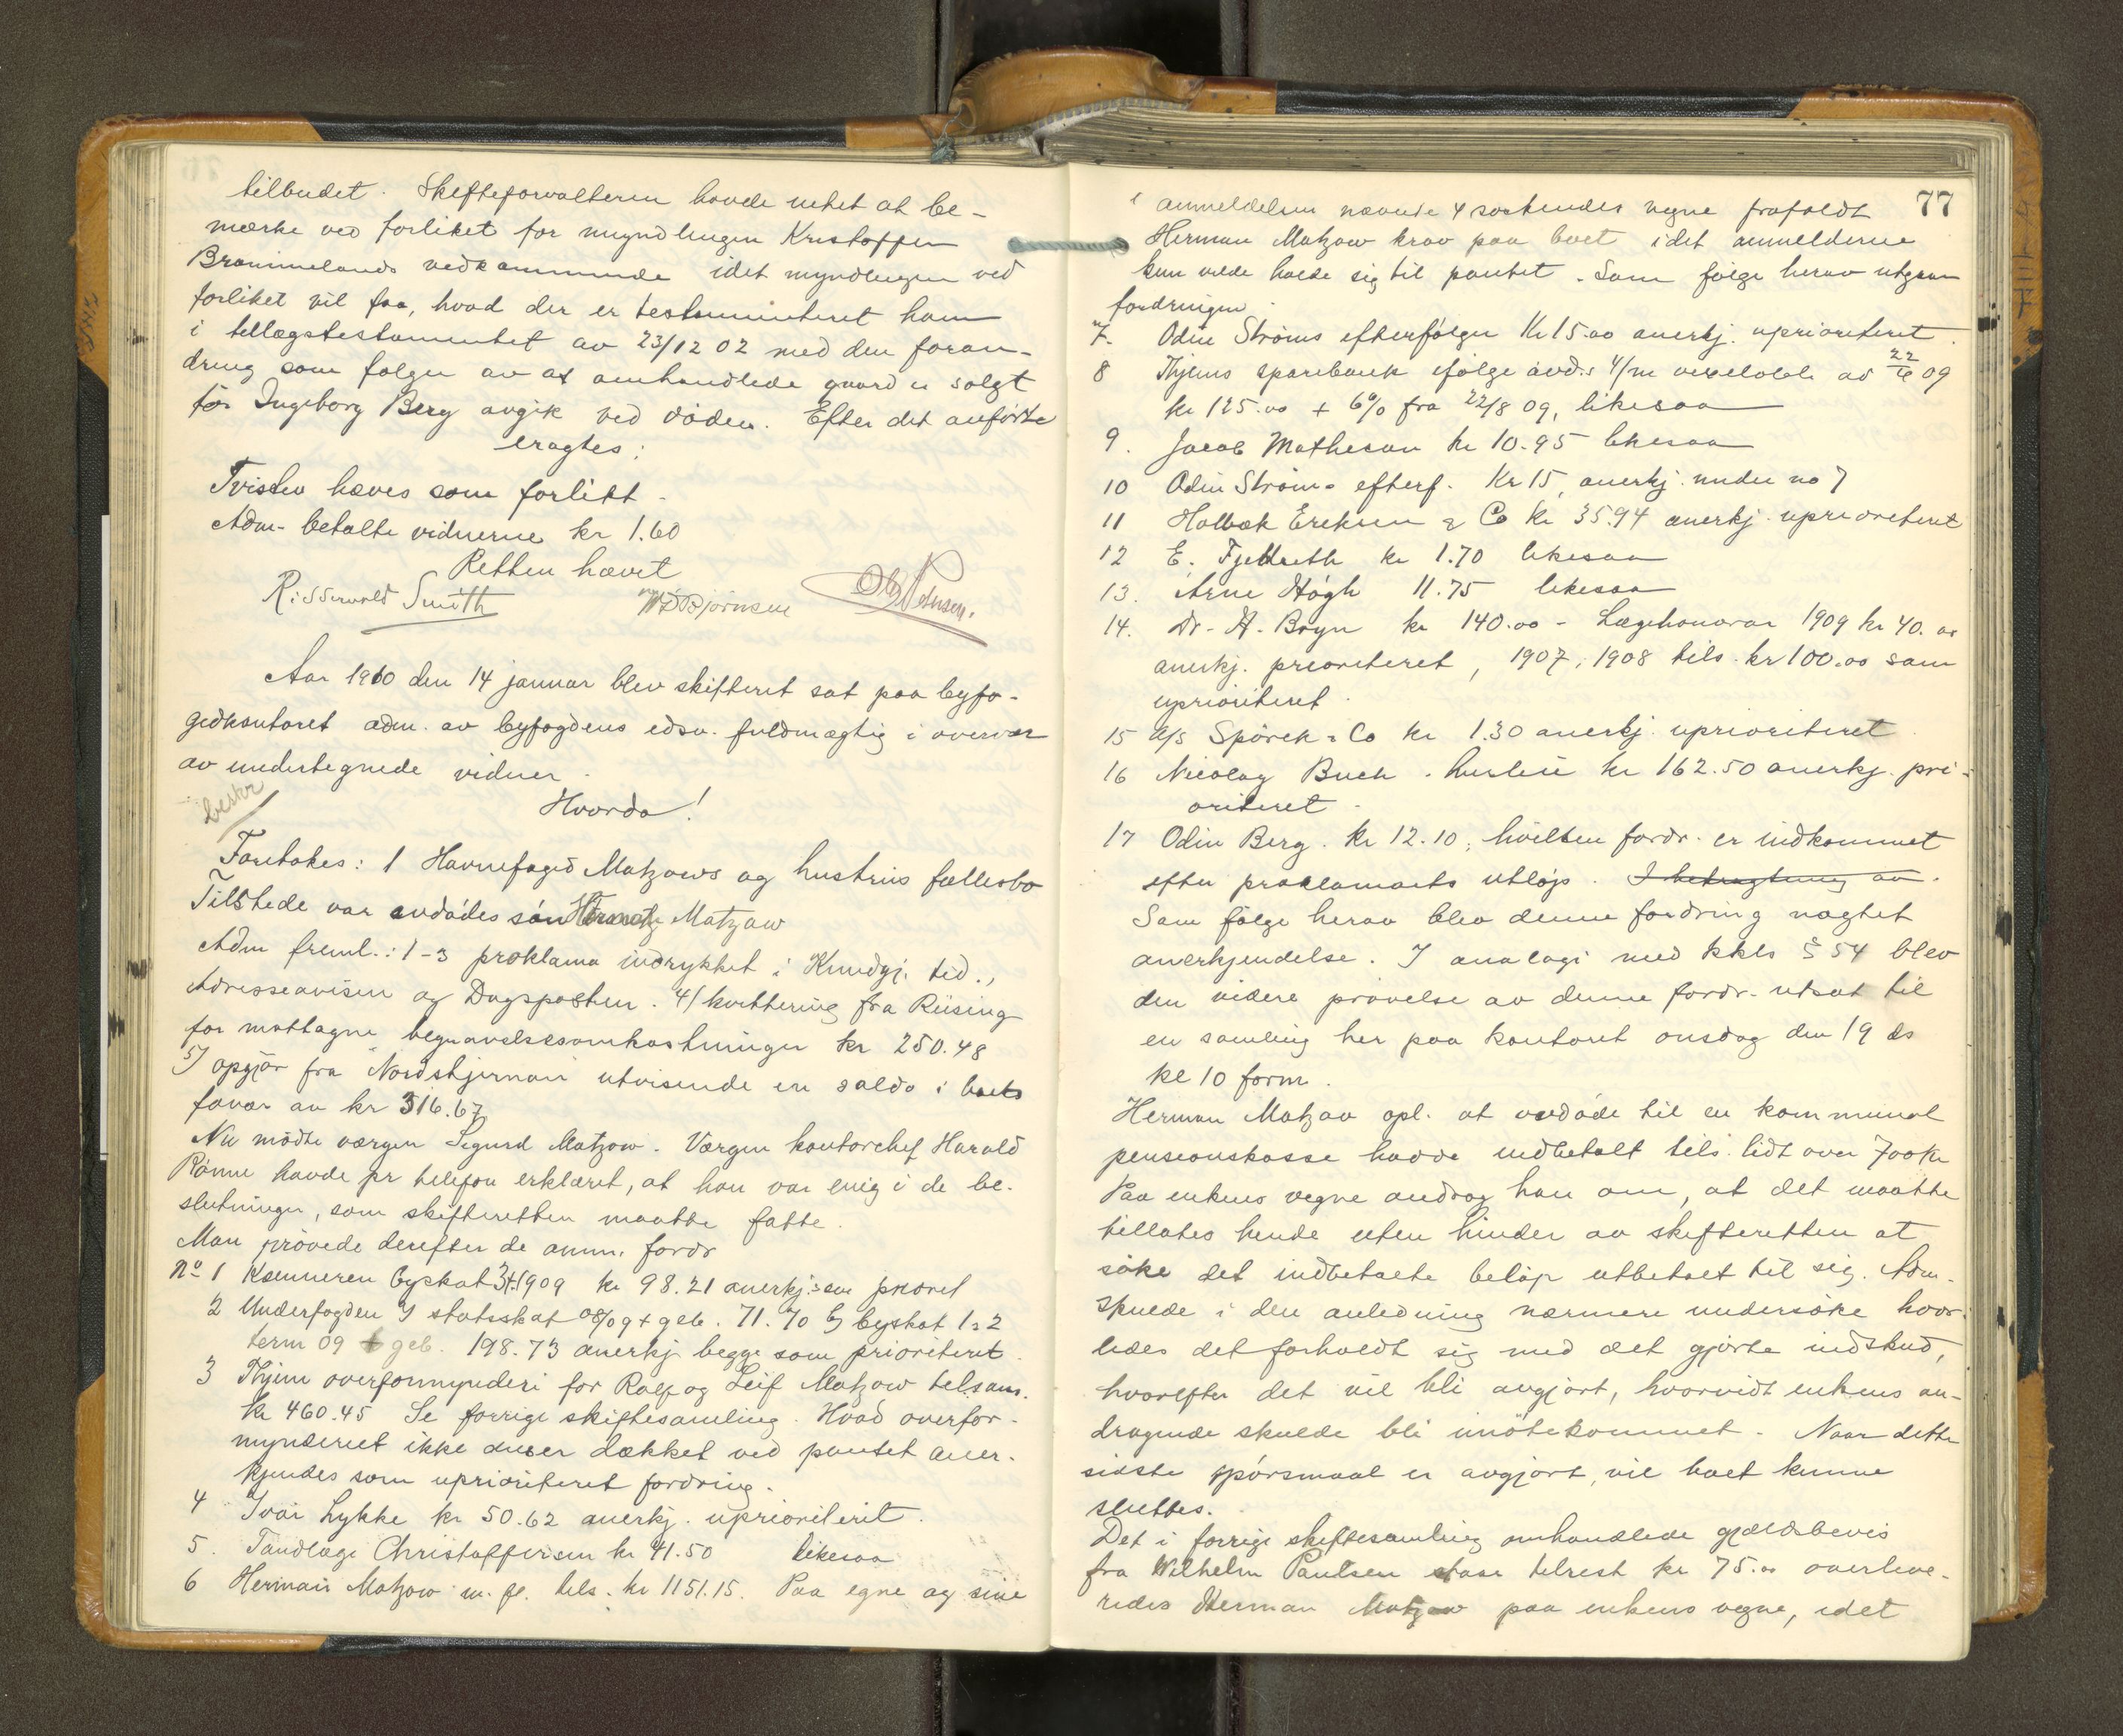 tilbudet. Skifteforvalteren havde intet at be-
mærke ved forliket for myndlingen Kristoffer
Brommelands vedkommende idet myndlingen ved
forliket vil faa, hvad der er testamenteret ham
i tillægstestamentet av 23/12 02 med den foran-
dring som følger av at omhandlede gaard er solgt
før Ingeborg Berg avgik ved døden. Efter det anførte
eragtes:
Tvisten hæves som forlikt.
Adm. betalte vidnerne kr 1.60
Retten hævet
Risservold Smith Bjørnsen
Aar 1910 den 14 januar blev skifteret sat paa byfo-
gedkontoret adm. av byfogdens edsv. fuldmægtig i overvær
av undertegnede vidner.
beskr
Hvorda!
Foretokes: 1 Havnefoged Matzows og hustrus fællesbo
Tilstede var avdødes søn Herman Matzow
Adm freml.: 1-3 proklama indrykket i Kundgj. tid.,
Adresseavisen og Dagsposten. 4/ kvittering fra Riising
for mottagne begravelsesomkostninger kr 250.48
5/ opgjør fra "Nordstjernan" utvisende en saldo i boets
favør av kr 316.67
Nu mødte værgen Sigurd Matzow. Værgen kontorchef Harald
Rønne havde pr telefon erklæret, at han var enig i de be-
slutninger, som skifteretten maatte fatte.
Man prøvede derefter de anm. fordr
No 1 Kæmneren byskat 1909 kr 98.21 anerkj. som priorit
2 Underfogden I statsskat 08/09 + geb. 71.70 byskat 1 2
term 09 + geb. 198.73 anerkj begge som prioriteret
3 Thjem overformynderi for Rolf og Leif Matzow tilsam.
kr 460.45 Se forrige skiftesamling. Hvad overfor-
mynderiet ikke anser dækket ved pantet aner-
kjendes som uprioriteret fordring.
4 Ivar Lykke kr 50.62 anerkj. uprioriterit.
5. Tandlæge Christoffersen kr 41.50 likesaa
6 Herman Matzow m. fl. tils. kr 1151.15. Paa egne og sine
77
i anmeldelsen nævnte 4 søskendes vegne frafaldt
Herman Matzow krav paa boet idet anmelderne
kun vilde holde sig til pantet. Som følge herav utgaar
fordringen.
7. Odin Strøms efterfølger Kr 15.00 anerkj. uprioriteret.
8 Thjems sparebank ifølge avd.s av 22/6 09
kr 125.00 + 6% fra 22/8 09, likesaa
9. Jacob Matheson kr 10.95 likesaa
10 Odin Strøms efterf. Kr 15, anerkj. under no 7
11 Holbæk Eriksen & Co kr 35.94 anerkj. uprioriteret
12 E. Fjeldseth kr 1.70 likesaa
13. Arne Høgh 11.75 likesaa
14. Dr. H. Bryn kr 140.00 - Lægehonorar 1909 kr 40.00
anerkj. prioriteret, 1907, 1908 tils. kr 100.00 som
uprioriteret.
15 A/S Spørck & Co kr 1.30 anerkj. uprioriteret
16 Nicolay Buch. husleie kr 162.50 anerkj. pri-
oriteret.
17 Odin Berg. kr 12.10, hvilken fordr. er indkommet
efter proklamaets utløp. I betragtning av.
Som følge herav blev denne fordring nægtet
anerkjendelse. I analogi med kkls § 54 blev
den videre prøvelse av denne fordr. utsat til
en samling her paa kontoret onsdag den 19 ds
kl 10 form.
Herman Matzow opl. at avdøde til en kommunal
pensionskasse havde indbetalt tils. lidt over 700 kr
Paa enkens vegne androg han om, at det maatte
tillates hende uten hinder av skifteretten at
søke det indbetalte beløp utbetalt til sig. Adm.
skulde i den anledning nærmere undersøke hvor-
ledes det forholdt sig med det gjorte indskud,
hvorefter det vil bli avgjort, hvorvidt enkens an-
dragende skulde bli imøtekommet. Naar dette
sidste spørsmaal er avgjort, vil boet kunne
sluttes.
Det i forrige skiftesamling omhandlede gjældsbevis
fra Wilhelm Paulsen stort tilrest kr 75.00 overleve-
redes Herman Matzow paa enkens vegne, idet